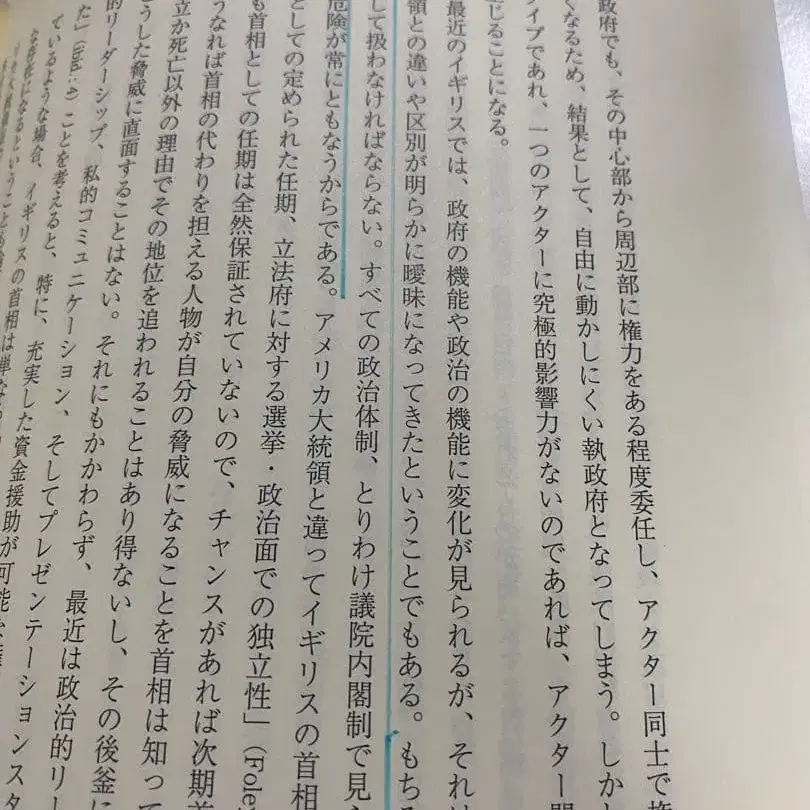 政府でも、その中心部から周辺部に権力をある程度委任し、アクター同士で権
くなるため、結果として、自由に動かしにくい執政府となってしまう。しかと
イプであれ、一つのアクターに究極的影響力がないのであれば、アクター間
じることになる。
最近のイギリスでは、政府の機能や政治の機能に変化が見られるが、それは
領との違いや区別が明らかに曖昧になってきたということでもある。もちろ
して扱わなければならない。すべての政治体制、とりわけ議院内閣制で見
危険が常にともなうからである。アメリカ大統領と違ってイギリスの首相
としての定められた任期、立法府に対する選挙・政治面での独立性」(Foley
も首相としての任期は全然保証されていないので、チャンスがあれば次期首
うなれば首相の代わりを担える人物が自分の脅威になることを首相は知って
立か死亡以外の理由でその地位を追われることはあり得ないし、その後釜に
うした脅威に直面することはない。それにもかかわらず、最近は政治的リー
的リーダーシップ、私的コミュニケーション、そしてプレゼンテーションスタ
た」(ibid.: 4) ことを考えると、特に、充実した資金援助が可能な
ているような場合、イギリスの首相は単な
な存在になるということも